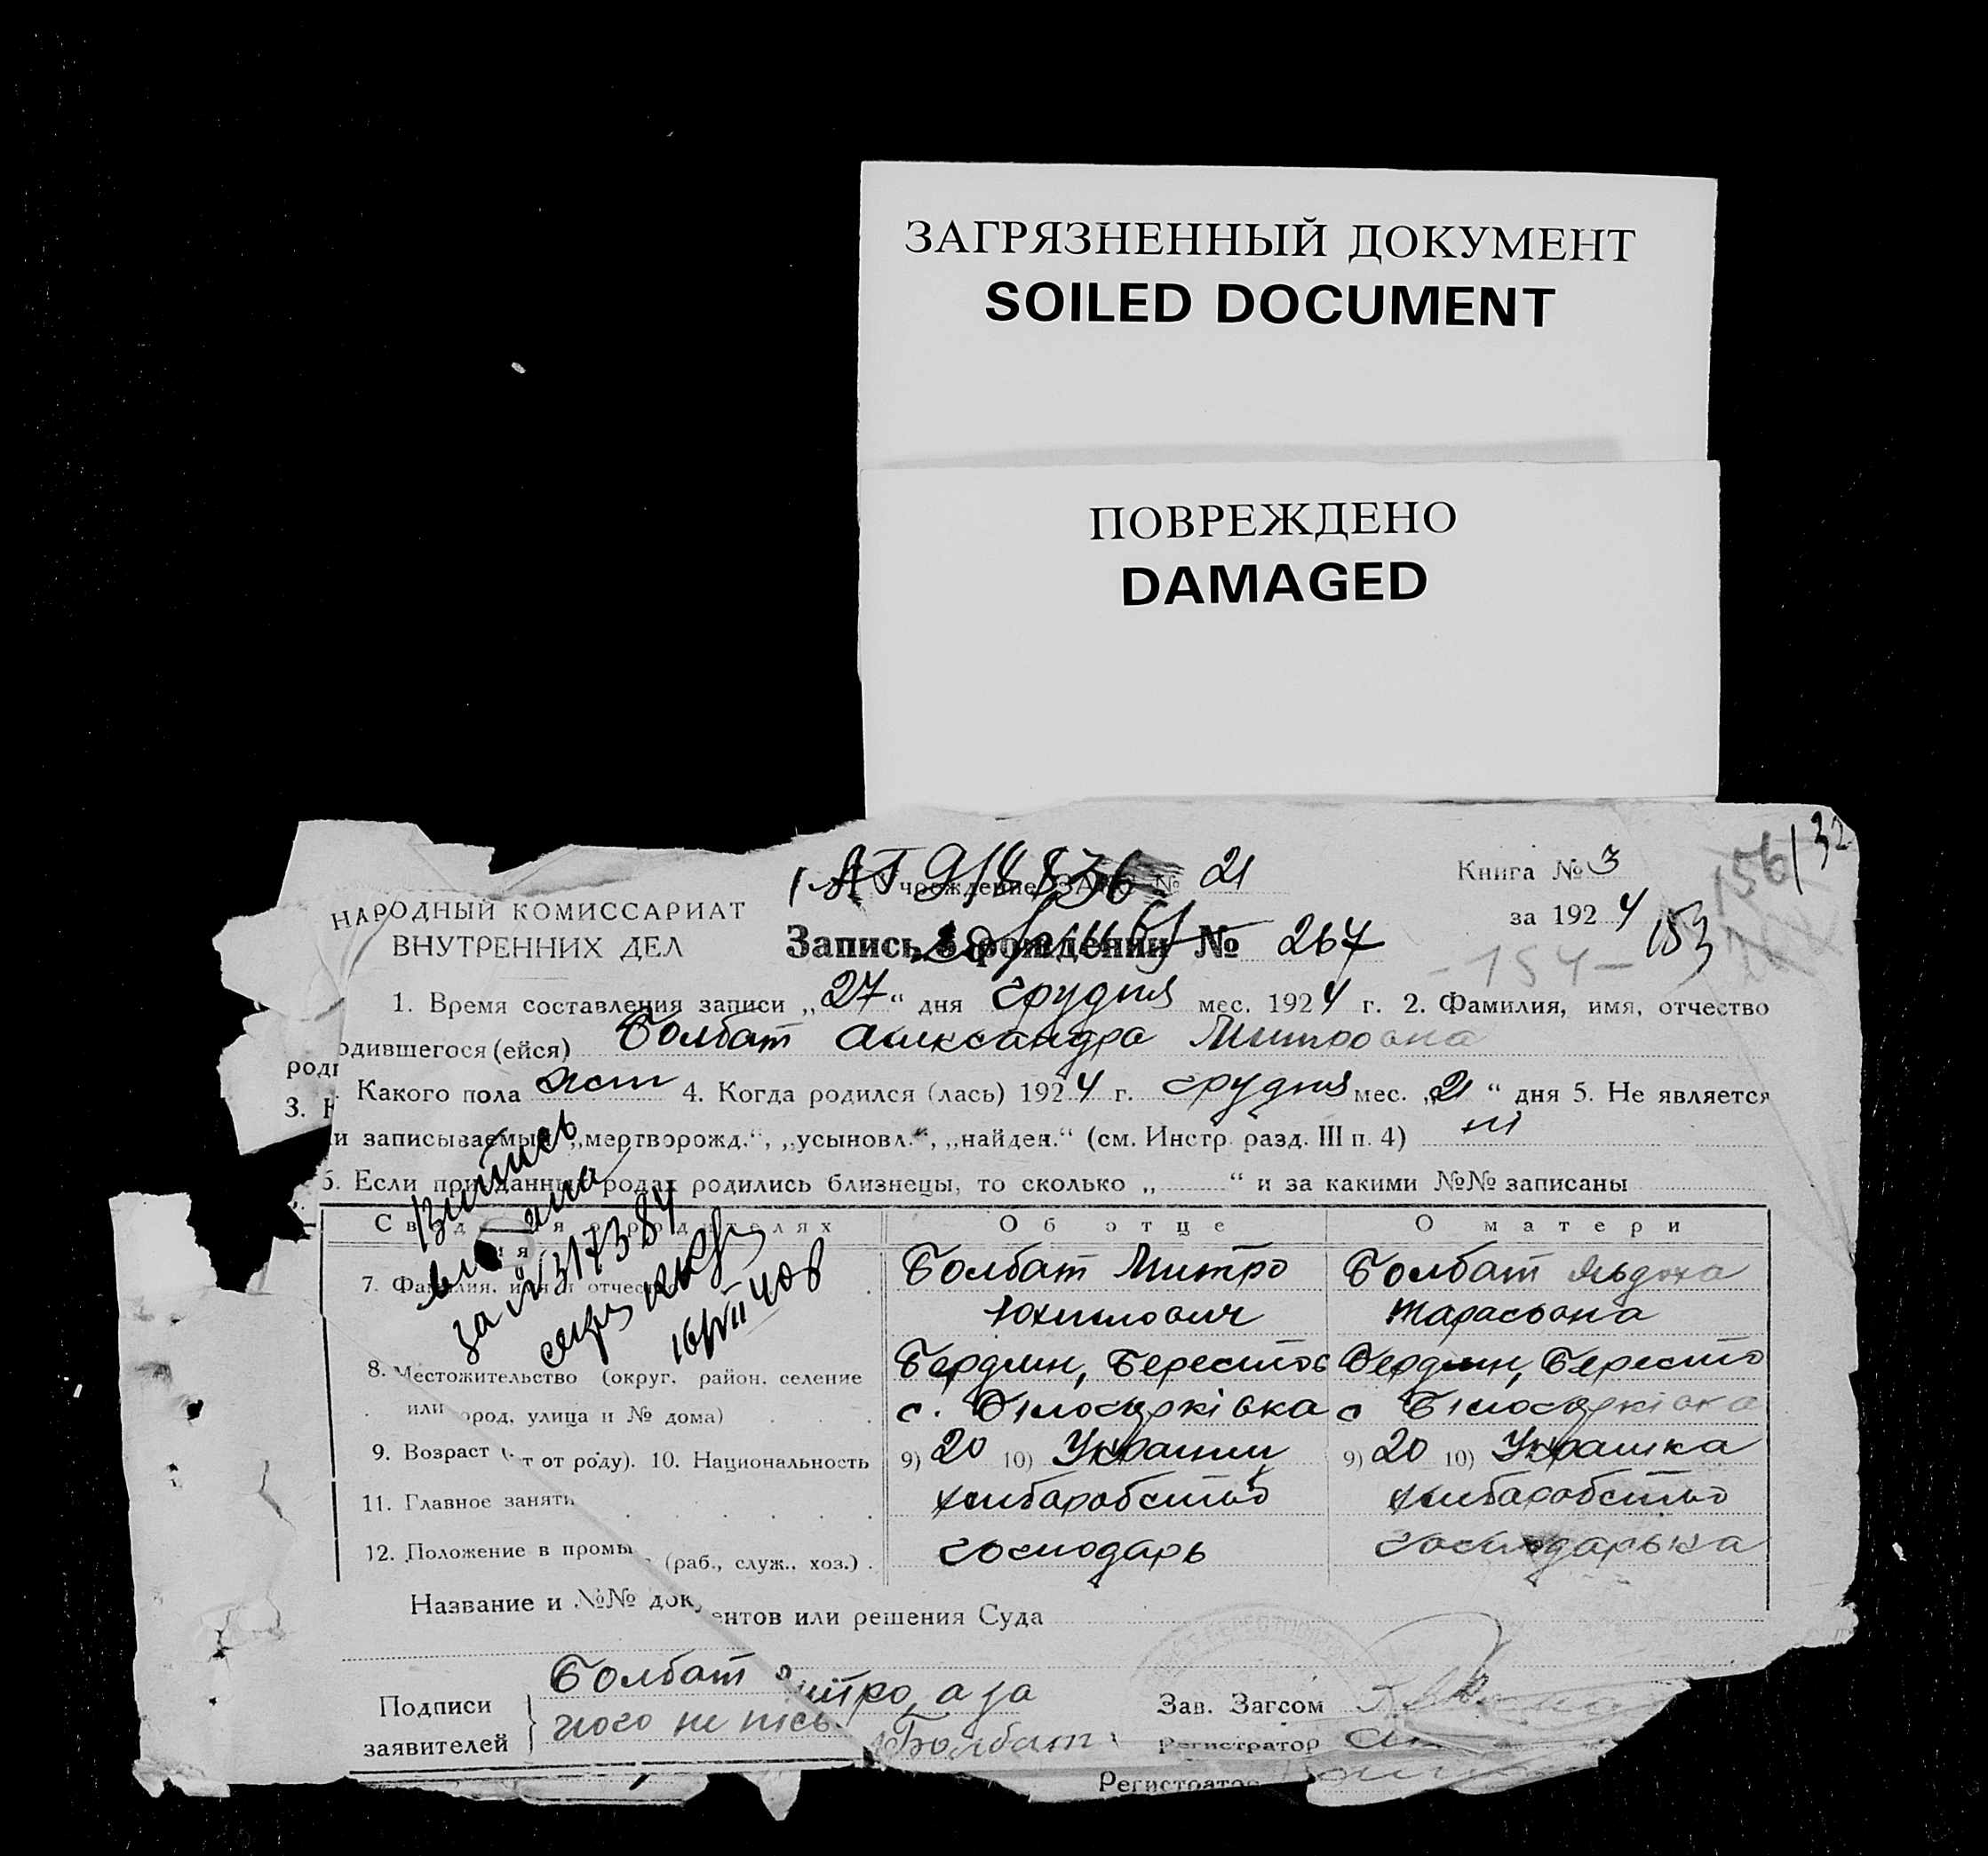 ЗАГРЯЗНЕННЫЙ ДОКУМЕНТ
SOILED DOCUMENT
ПОВРЕЖДЕНО
DAMAGED
32
156
№ 21
Книга № 3
НАРОДНЫЙ КОМИССАРИАТ
за 1924
153
ВНУТРЕННИХ ДЕЛ
Запись о рождении № 267
-154-
1. Время составления записи „27“ дня грудня мес. 1924 г. 2. Фамилия, имя, отчество
одившегося (ейся) Болбат Александра Митровна
роди
3. Какого пола жот 4. Когда родился (лась) 1924 г. грудня мес. „21“ дня 5. Не является
и записываемый „мертворожд.“, „усыновл.“, „найден.“ (см. Инстр. разд. III п. 4) ні
6. Если при данных родах родились близнецы, то сколько „ “ и за какими №№ записаны
Сведения о родителях
Об отце
О матери
7. Фамилия, имя и отчес
Болбат Митро
Болбат Явдоха
Юхимович
Тарасовна
8. Местожительство (округ, район, селение
Бердян, Берестов
Бердян, Бересто
или город, улица и № дома)
с. Білоцерківка
с Білоцерківка
9. Возраст (т от роду). 10. Национальность
9) 20 10) Украинц
9) 20 10) Украинка
11. Главное заняти
хлибаробство
хлибаробство
12. Положение в промы (раб., служ., хоз.)
господарь
господарька
Название и №№ документов или решения Суда
Подписи
заявителей
Болбат митро, а за
його не письм Болбат
Зав. Загсом
Регистратор
Регистратор